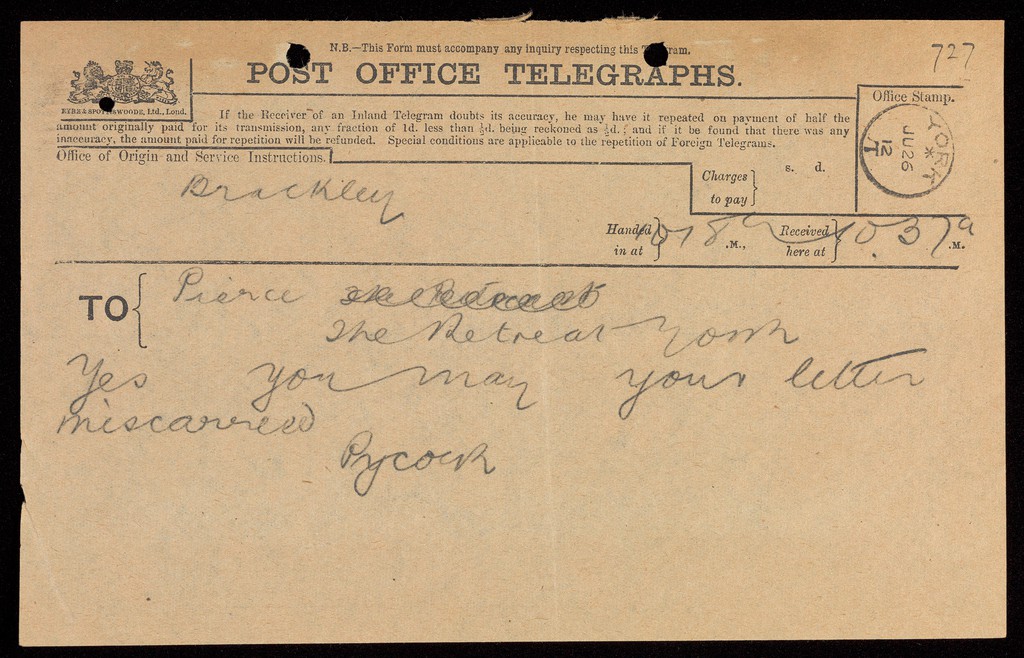 727
N.B.—This Form must accompany any inquiry respecting this Telegram.
POST OFFICE TELEGRAPHS.
EYRE & SPOTTISWOODE, Ltd., Lond.
If the Receiver of an Inland Telegram doubts its accuracy, he may have it repeated on payment of half the
amount originally paid for its transmission, any fraction of 1d. less than ½d. being reckoned as ½d.; and if it be found that there was any
inaccuracy, the amount paid for repetition will be refunded. Special conditions are applicable to the repetition of Foreign Telegrams.
Office Stamp.
YORK
JU 26
12
T
Office of Origin and Service Instructions.
Brackley
Charges to pay
s. d.
Handed in at 10 18 .M., Received here at 10 37 a .M.
TO Pierce
The Retreat York
Yes you may your letter
miscarried
Pycock